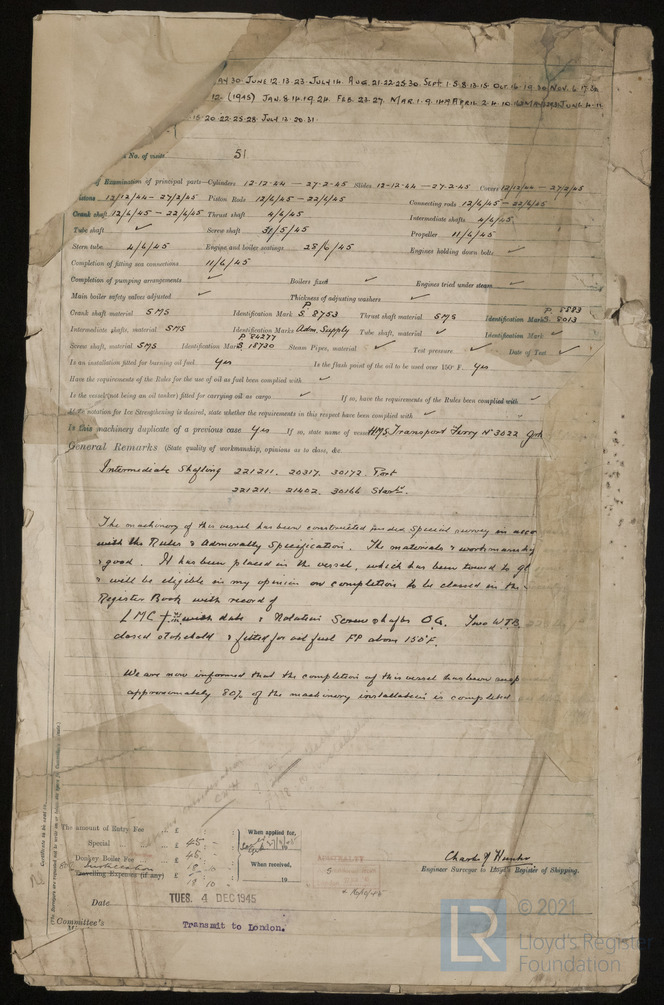 30. JUNE 12.13.23. JULY 14. AUG. 21.22.25.30. Sept. 1.5.8.13.15. Oct. 16.19.30. Nov. 6.
12. (1945) JAN. 8.14.19.24. FEB. 23.27. MAR. 1.9. APRIL 2.4.10. JUNE 4.11
15.20.22.25.28. July 12.20.31.
No. of visits 51
of Examination of principal parts—Cylinders 12-12-44 — 27-2-45 Slides 12-12-44 — 27-2-45 Covers 12/12/44 — 27/2/45
Pistons 12/12/44 — 27/2/45 Piston Rods 12/6/45 — 22/6/45 Connecting rods 12/6/45 — 22/6/45
Crank shaft 12/6/45 — 22/6/45 Thrust shaft 4/6/45 Intermediate shafts 4/6/45
Tube shaft ✓ Screw shaft 31/5/45 Propeller 11/6/45
Stern tube 4/6/45 Engine and boiler seatings 28/6/45 Engines holding down bolts ✓
Completion of fitting sea connections 11/6/45
Completion of pumping arrangements ✓ Boilers fixed ✓ Engines tried under steam ✓
Main boiler safety valves adjusted ✓ Thickness of adjusting washers ✓
Crank shaft material SMS Identification Mark P. S 8753 Thrust shaft material SMS Identification Mark P. 8883 S. 8013
Intermediate shafts, material SMS Identification Marks Adm. Supply Tube shaft, material ✓ Identification Mark ✓
Screw shaft, material SMS Identification Mark P 84277 S 18730 Steam Pipes, material ✓ Test pressure ✓ Date of Test ✓
Is an installation fitted for burning oil fuel Yes Is the flash point of the oil to be used over 150° F. Yes
Have the requirements of the Rules for the use of oil as fuel been complied with ✓
Is the vessel (not being an oil tanker) fitted for carrying oil as cargo ✓ If so, have the requirements of the Rules been complied with ✓
If the notation for Ice Strengthening is desired, state whether the requirements in this respect have been complied with ✓
Is this machinery duplicate of a previous case Yes If so, state name of vessel HMS Transport Ferry No 3022
General Remarks (State quality of workmanship, opinions as to class, &c.
Intermediate Shafting 221211. 20317. 30172. Port
221211. 21402. 30166 Starbd.
The machinery of this vessel has been constructed under Special survey in
with the Rules & Admiralty Specification. The materials & workmanship
good. It has been placed in the vessel, which has been towed to
& will be eligible in my opinion on completion to be classed in the
Register Book with record of
LMC with date & Notation Screwshafts O.G. Two W.T.B
closed stokehold & fitted for oil fuel FP above 150°F.
We are now informed that the completion of this vessel has been
approximately 80% of the machinery installation is completed
The amount of Entry Fee £
Special £ 45
Donkey Boiler Fee £ 45
Travelling Expenses (if any) £
When applied for,
19
When received,
19
Engineer Surveyor to Lloyd's Register of Shipping.
Date TUES. 4 DEC 1945
Committee's
Transmit to London.
© 2021
LR
Lloyd's Register
Foundation